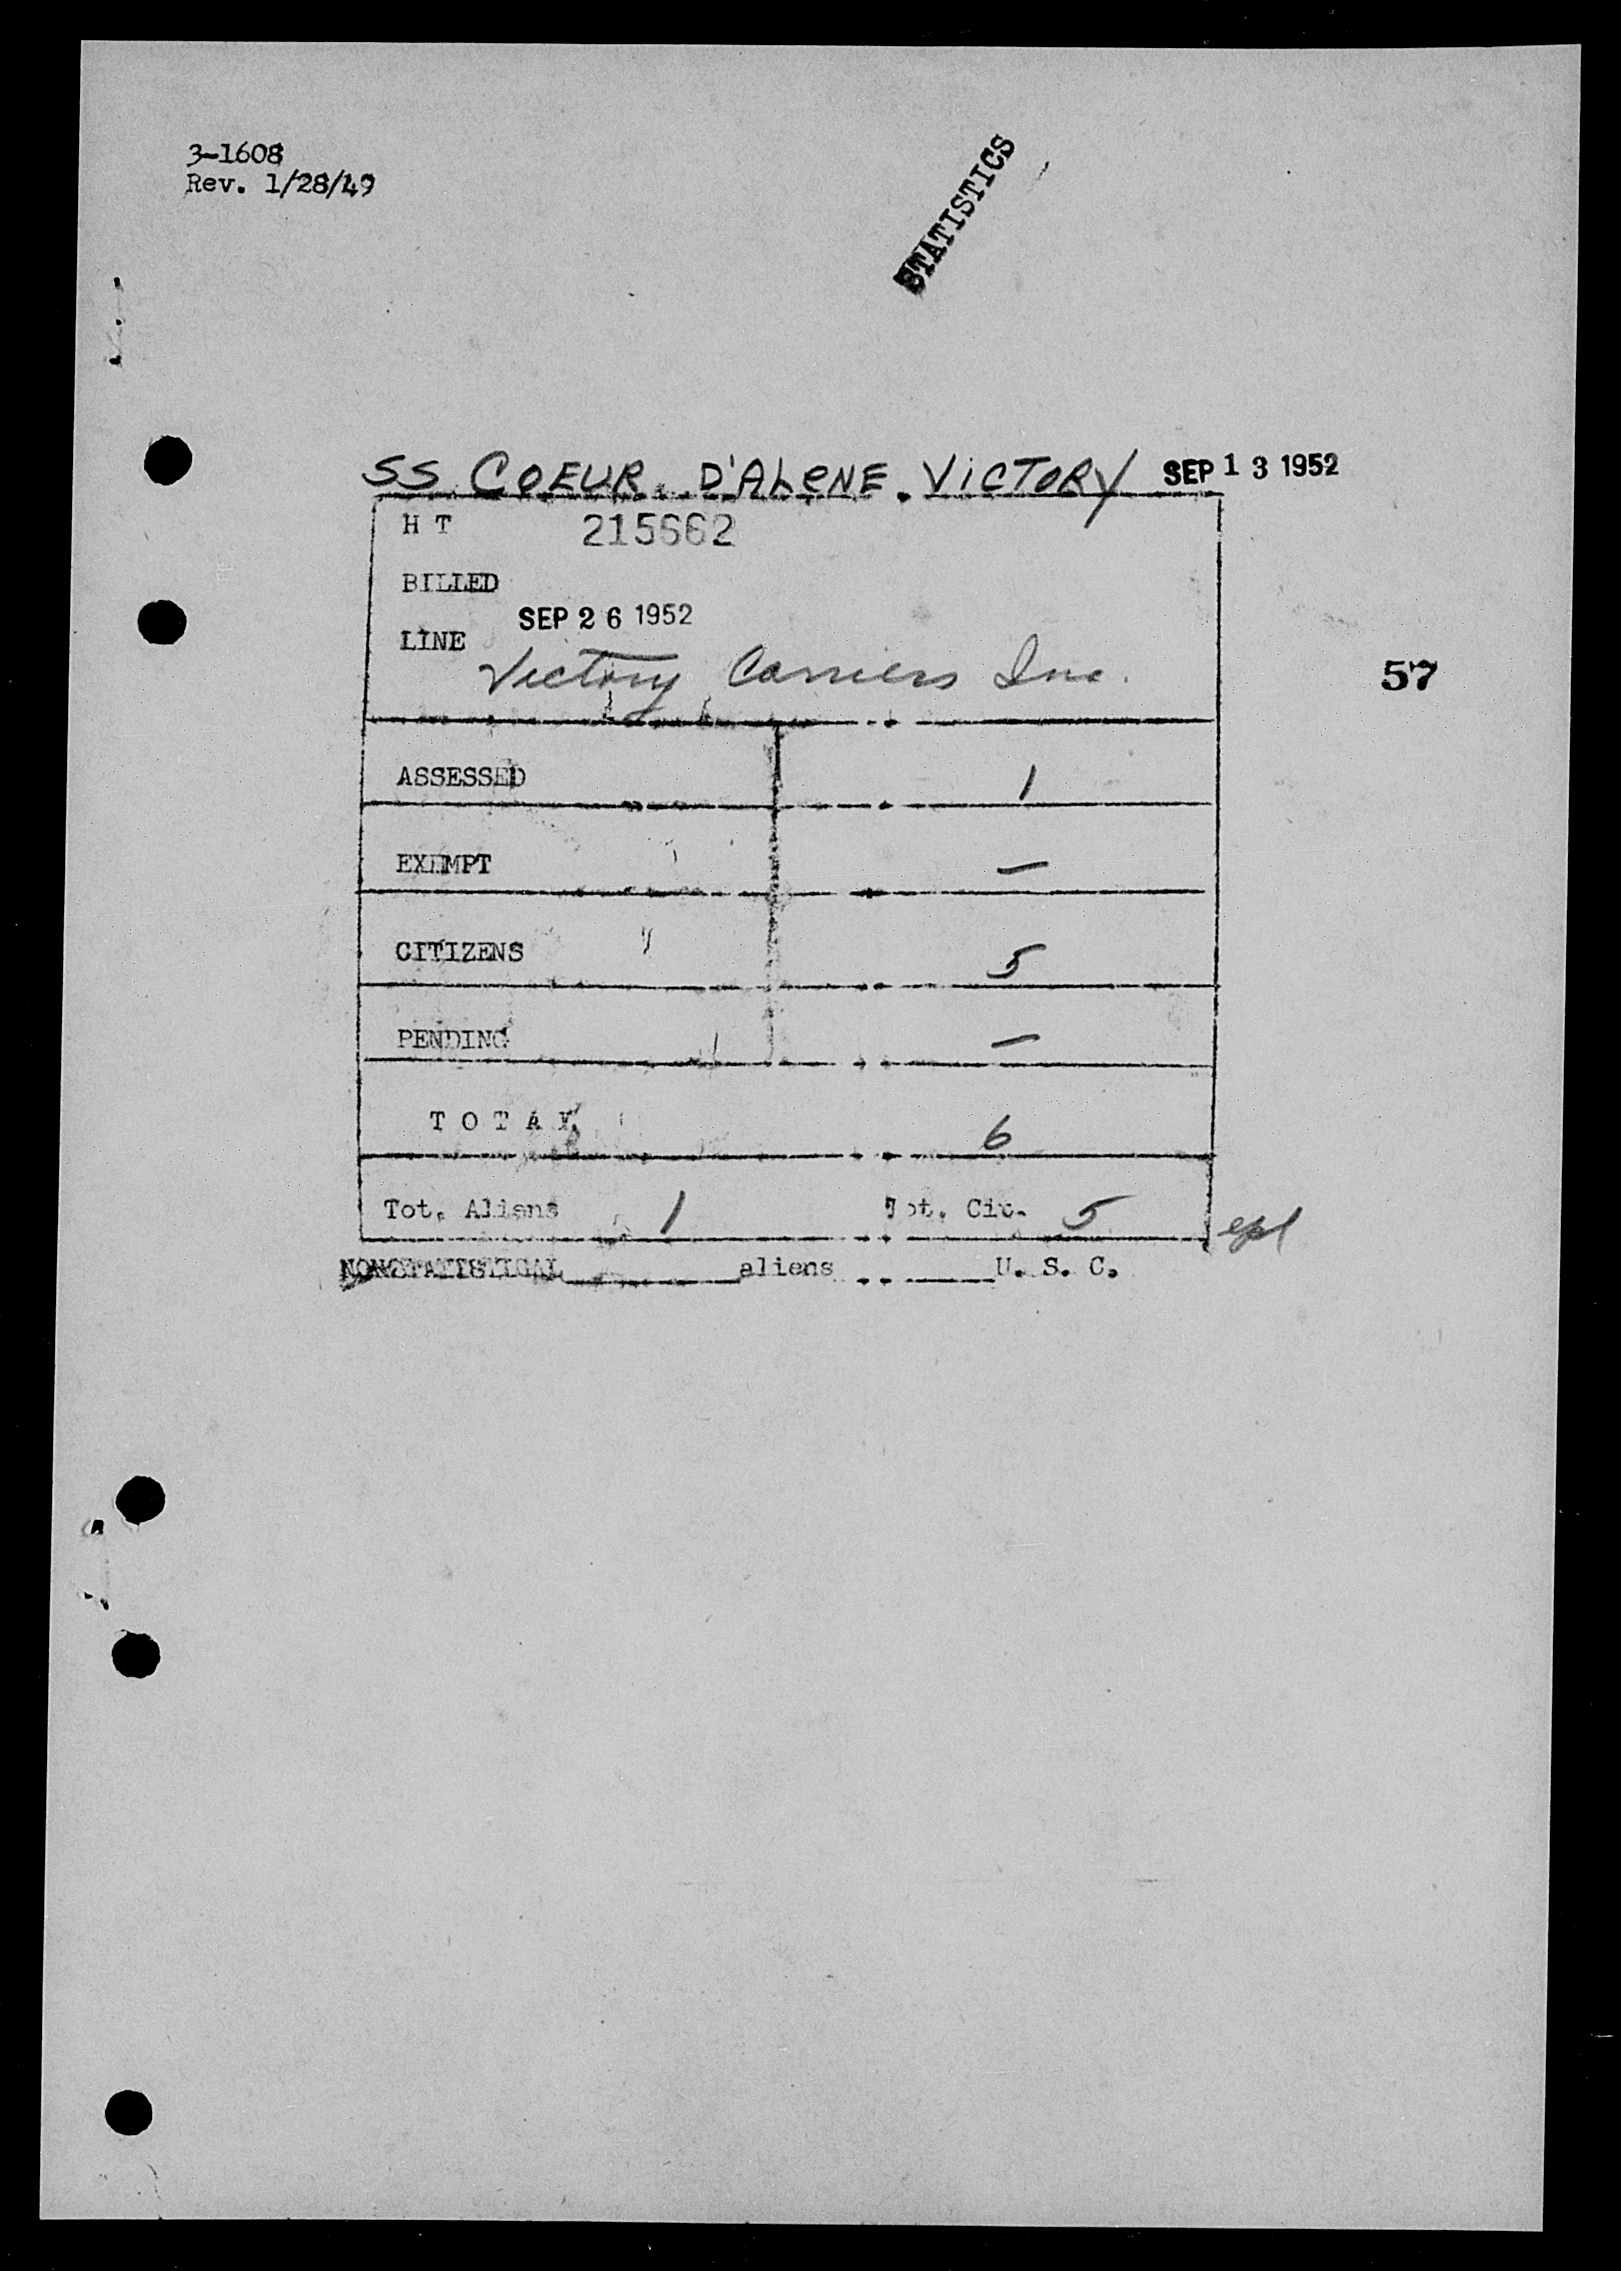 3-1608
Rev. 1/28/49
STATISTICS
SS COEUR D'ALENE VICTORY SEP 13 1952
H T 215662
BILLED
SEP 26 1952
LINE
Victory Carriers Inc.
57
ASSESSED 1
EXEMPT —
CITIZENS 5
PENDING —
T O T A L 6
Tot. Aliens 1 Tot. Cit. 5
NONSTATISTICAL aliens U. S. C.